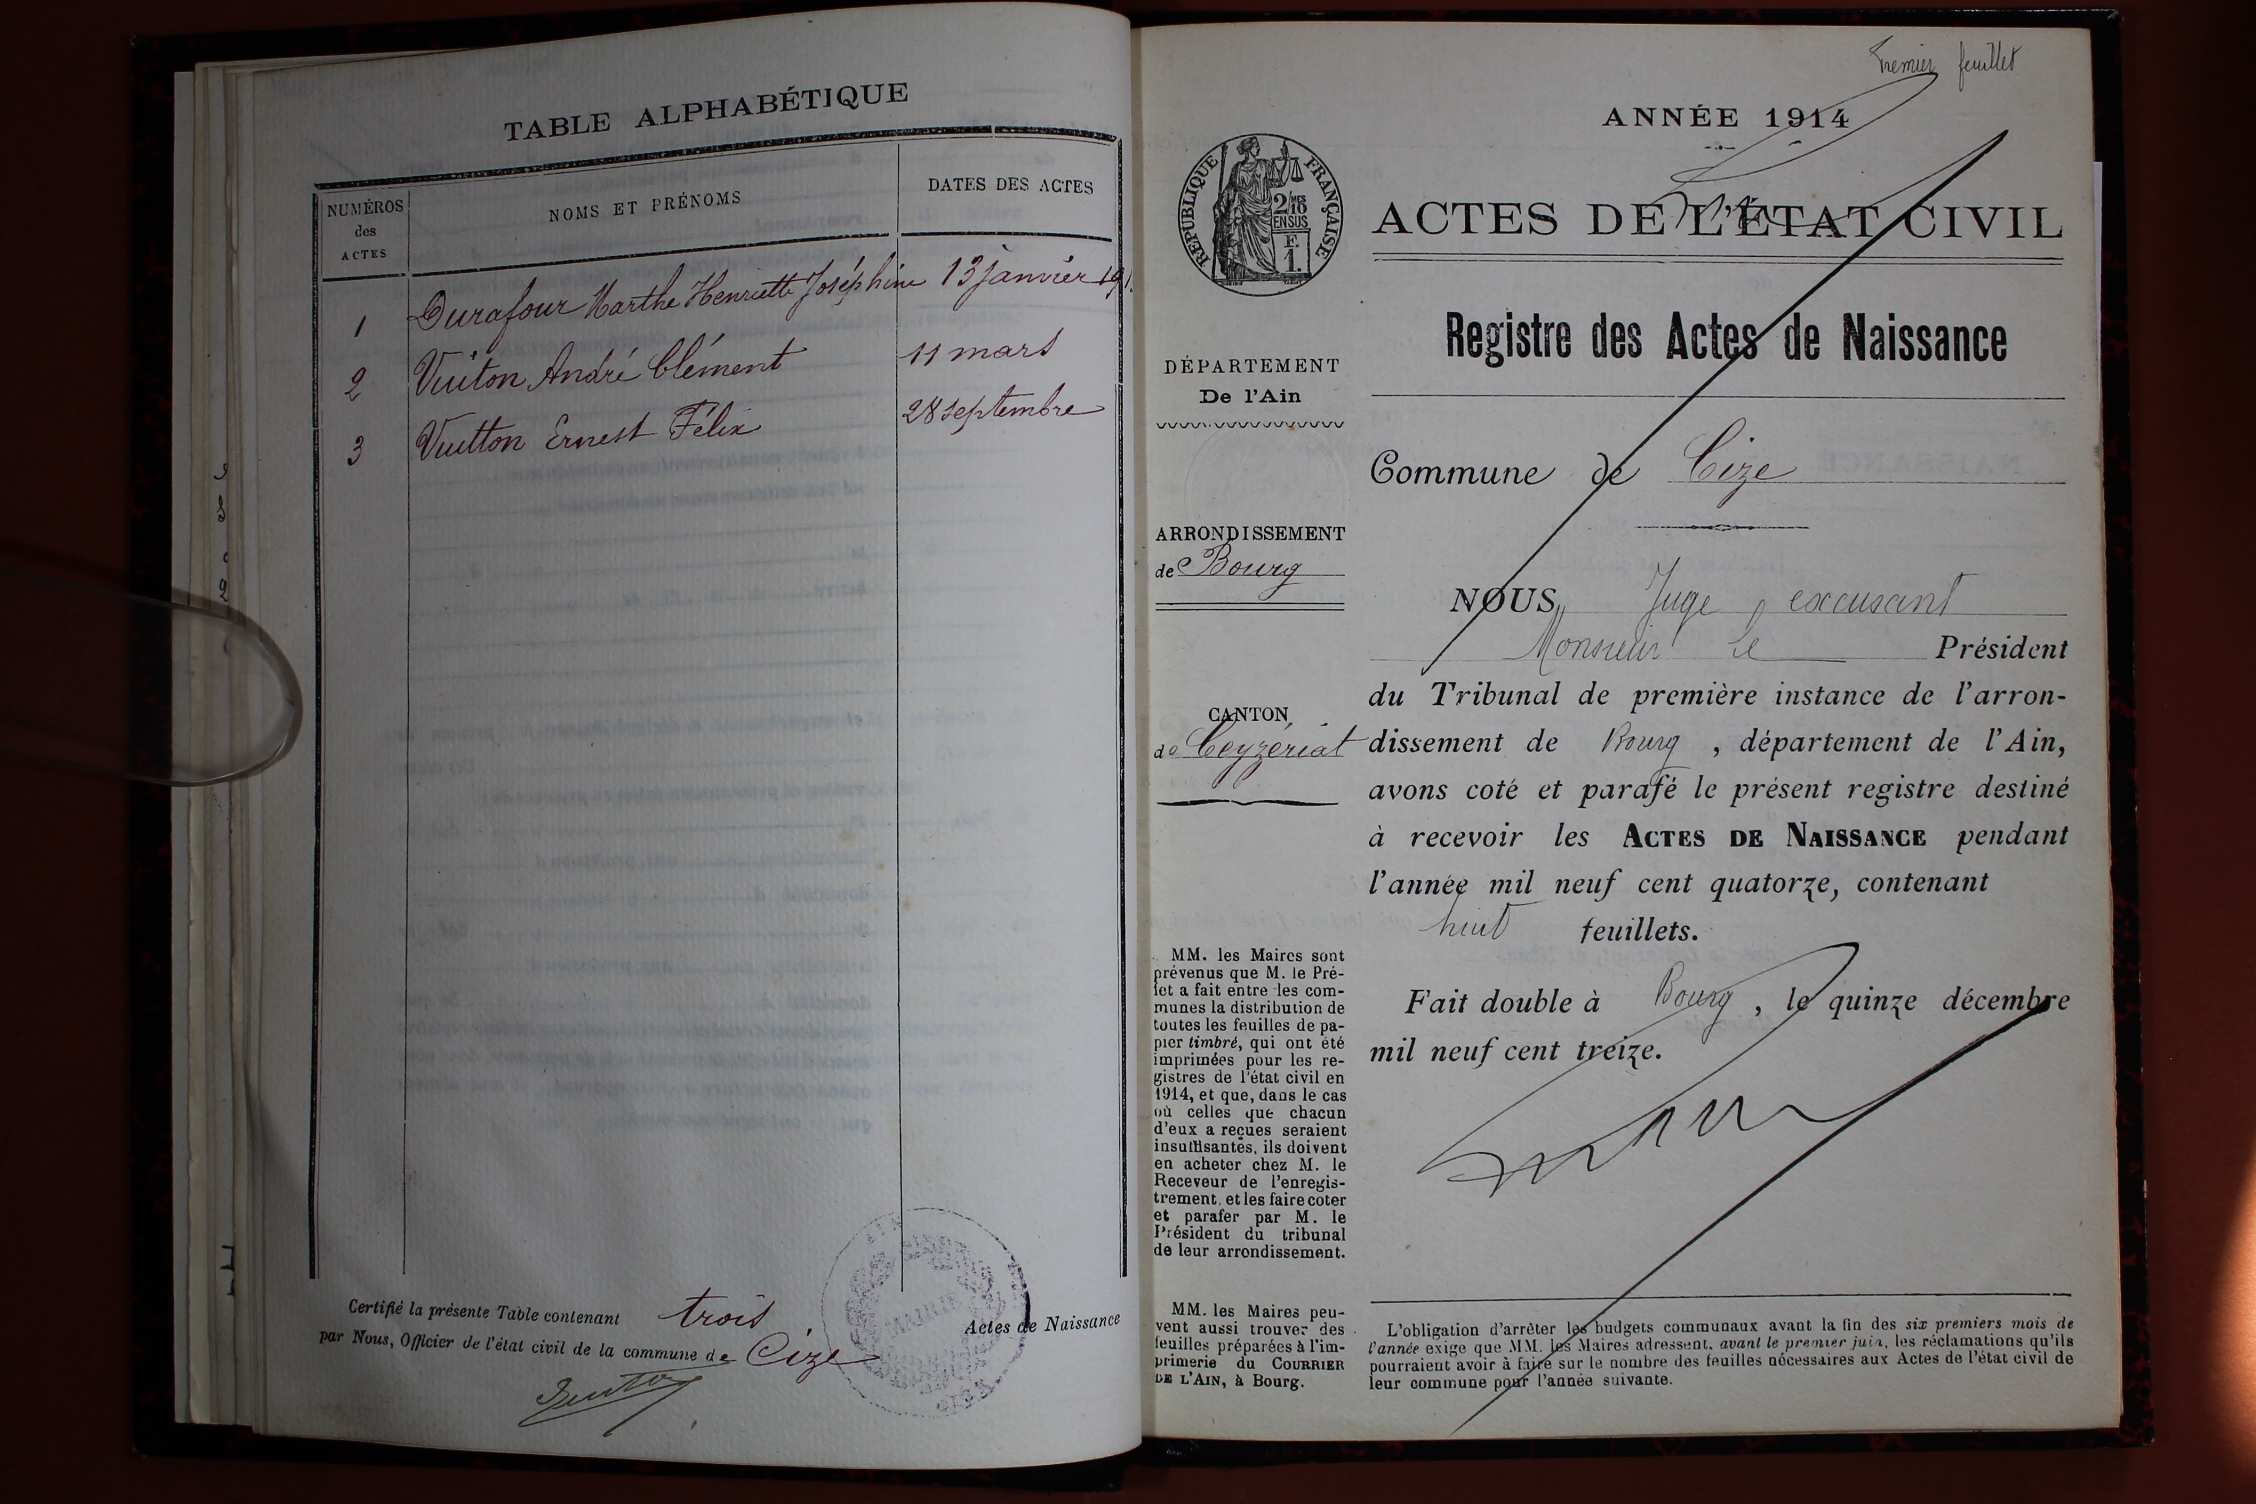 TABLE ALPHABÉTIQUE
NUMÉROS
des
ACTES
NOMS ET PRÉNOMS
DATES DES ACTES
1 Durafour Marthe Henriette Joséphine 13 janvier 191
2 Vuiton André Clément 11 mars
3 Vuitton Ernest Félix 28 septembre
Certifié la présente Table contenant trois Actes de Naissance
par Nous, Officier de l'état civil de la commune de Cize
MAIRIE
AIN
Premier feuillet
ANNÉE 1914
RÉPUBLIQUE FRANÇAISE
2/10 MES
EN SUS
F.
1.
ACTES DE L'ÉTAT CIVIL
Registre des Actes de Naissance
DÉPARTEMENT
De l'Ain
Commune de Cize
ARRONDISSEMENT
de Bourg
NOUS, Juge excusant
Monsieur le Président
du Tribunal de première instance de l'arron-
CANTON
de Ceyzériat
dissement de Bourg, département de l'Ain,
avons coté et parafé le présent registre destiné
à recevoir les ACTES DE NAISSANCE pendant
l'année mil neuf cent quatorze, contenant
huit feuillets.
Fait double à Bourg, le quinze décembre
mil neuf cent treize.
MM. les Maires sont
prévenus que M. le Pré-
fet a fait entre les com-
munes la distribution de
toutes les feuilles de pa-
pier timbré, qui ont été
imprimées pour les re-
gistres de l'état civil en
1914, et que, dans le cas
où celles que chacun
d'eux a reçues seraient
insuffisantes, ils doivent
en acheter chez M. le
Receveur de l'enregis-
trement, et les faire coter
et parafer par M. le
Président du tribunal
de leur arrondissement.
MM. les Maires peu-
vent aussi trouver des
feuilles préparées à l'im-
primerie du COURRIER
DE L'AIN, à Bourg.
L'obligation d'arrêter les budgets communaux avant la fin des six premiers mois de
l'année exige que MM. les Maires adressent, avant le premier juin, les réclamations qu'ils
pourraient avoir à faire sur le nombre des feuilles nécessaires aux Actes de l'état civil de
leur commune pour l'année suivante.